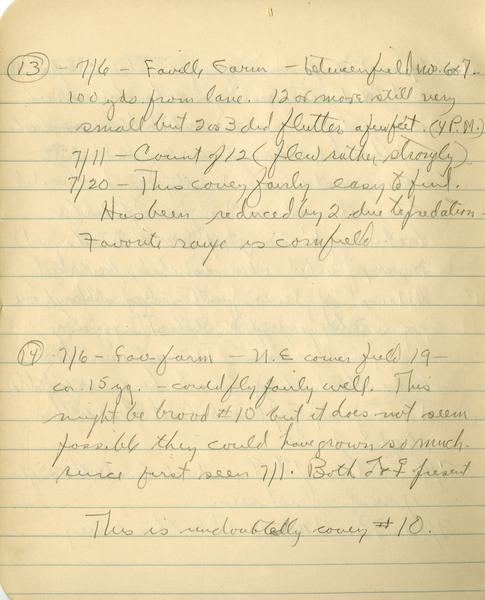 (13) - 7/6 - Faville Farm - between field no. 6 & 7.
100 yds. from lane. 12 or more still very
small but 2 or 3 did flutter a few feet. (4 P.M.)
7/11 - Count of 12 (flew rather strongly)
7/20 - This covey fairly easy to find.
Has been reduced by 2 due to predation -
Favorite range is cornfield.
(14) 7/6 - Fav-farm - N.E corner field 19 -
ca. 15 yg. - could fly fairly well. This
might be brood #10 but it does not seem
possible they could have grown so much
since first seen 7/1. Both present
This is undoubtedly covey #10.